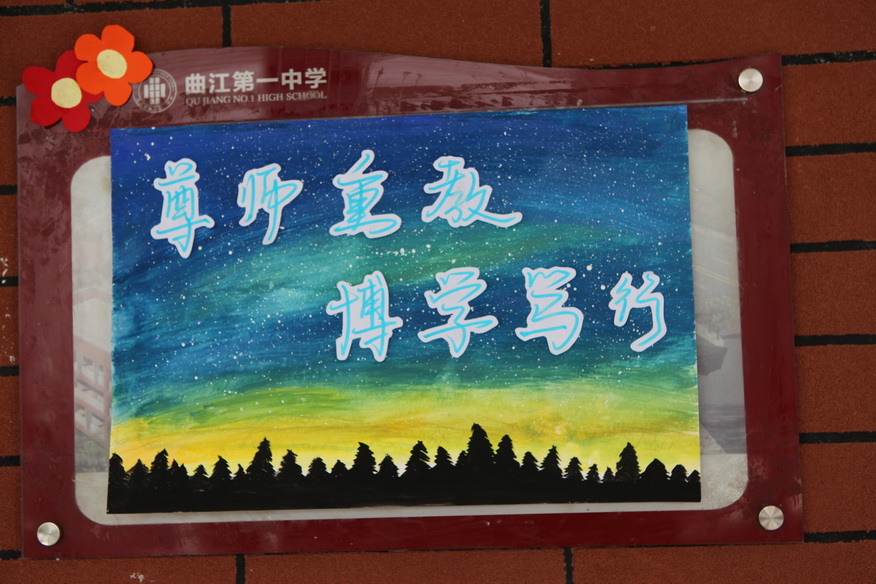 曲江第一中学
QU JIANG NO.1 HIGH SCHOOL
尊师重教
博学笃行